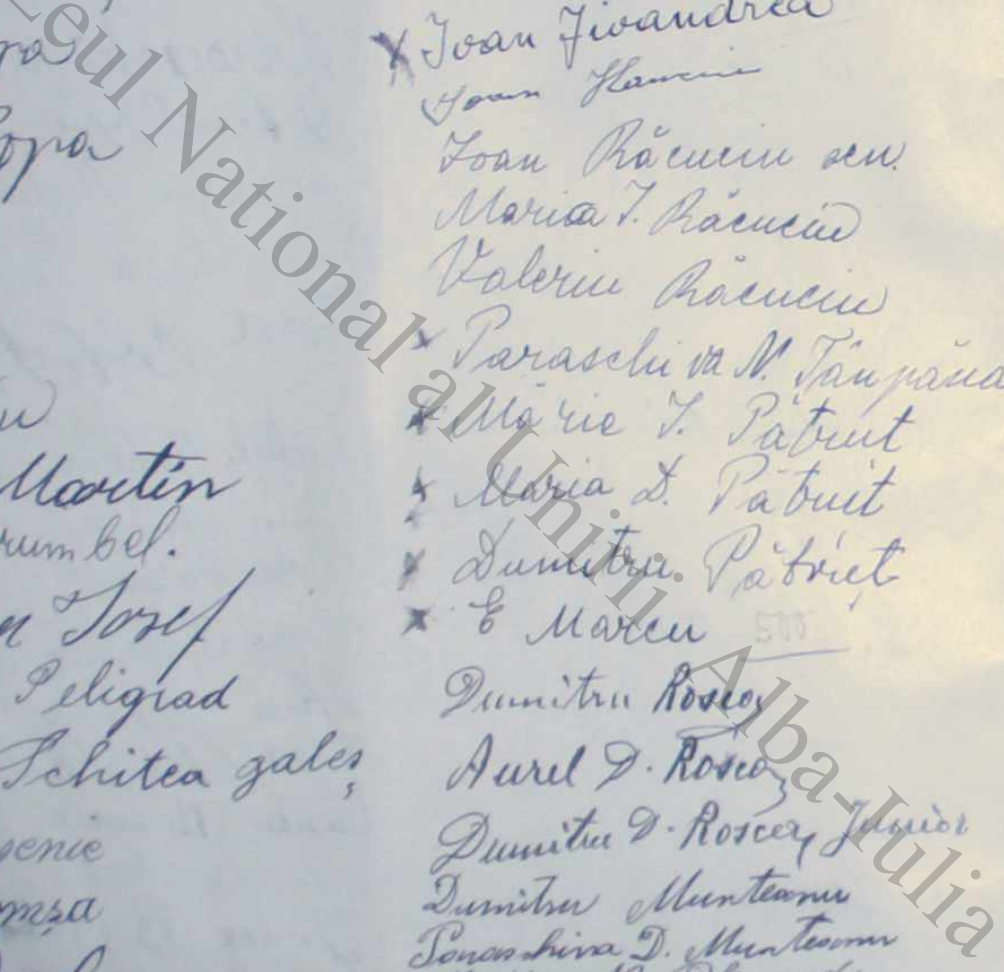 Popa
Martin
Josef
Peligrad
Schitea galeș
Ioan Jivandrea
Ioan
Ioan Răcuciu sen.
Maria I. Răcuciu
Valeriu Răcuciu
Paraschiva N. Tânpăna
Marie I. Pătruit
Maria D. Pătruit
Dumitru Pătruț
E Marcu 500
Dumitru Roșca
Aurel D. Roșca
Dumitru D. Roșca Junior
Dumitru Munteanu
Paraschiva D. Munteanu
National al Unirii Alba-Iulia